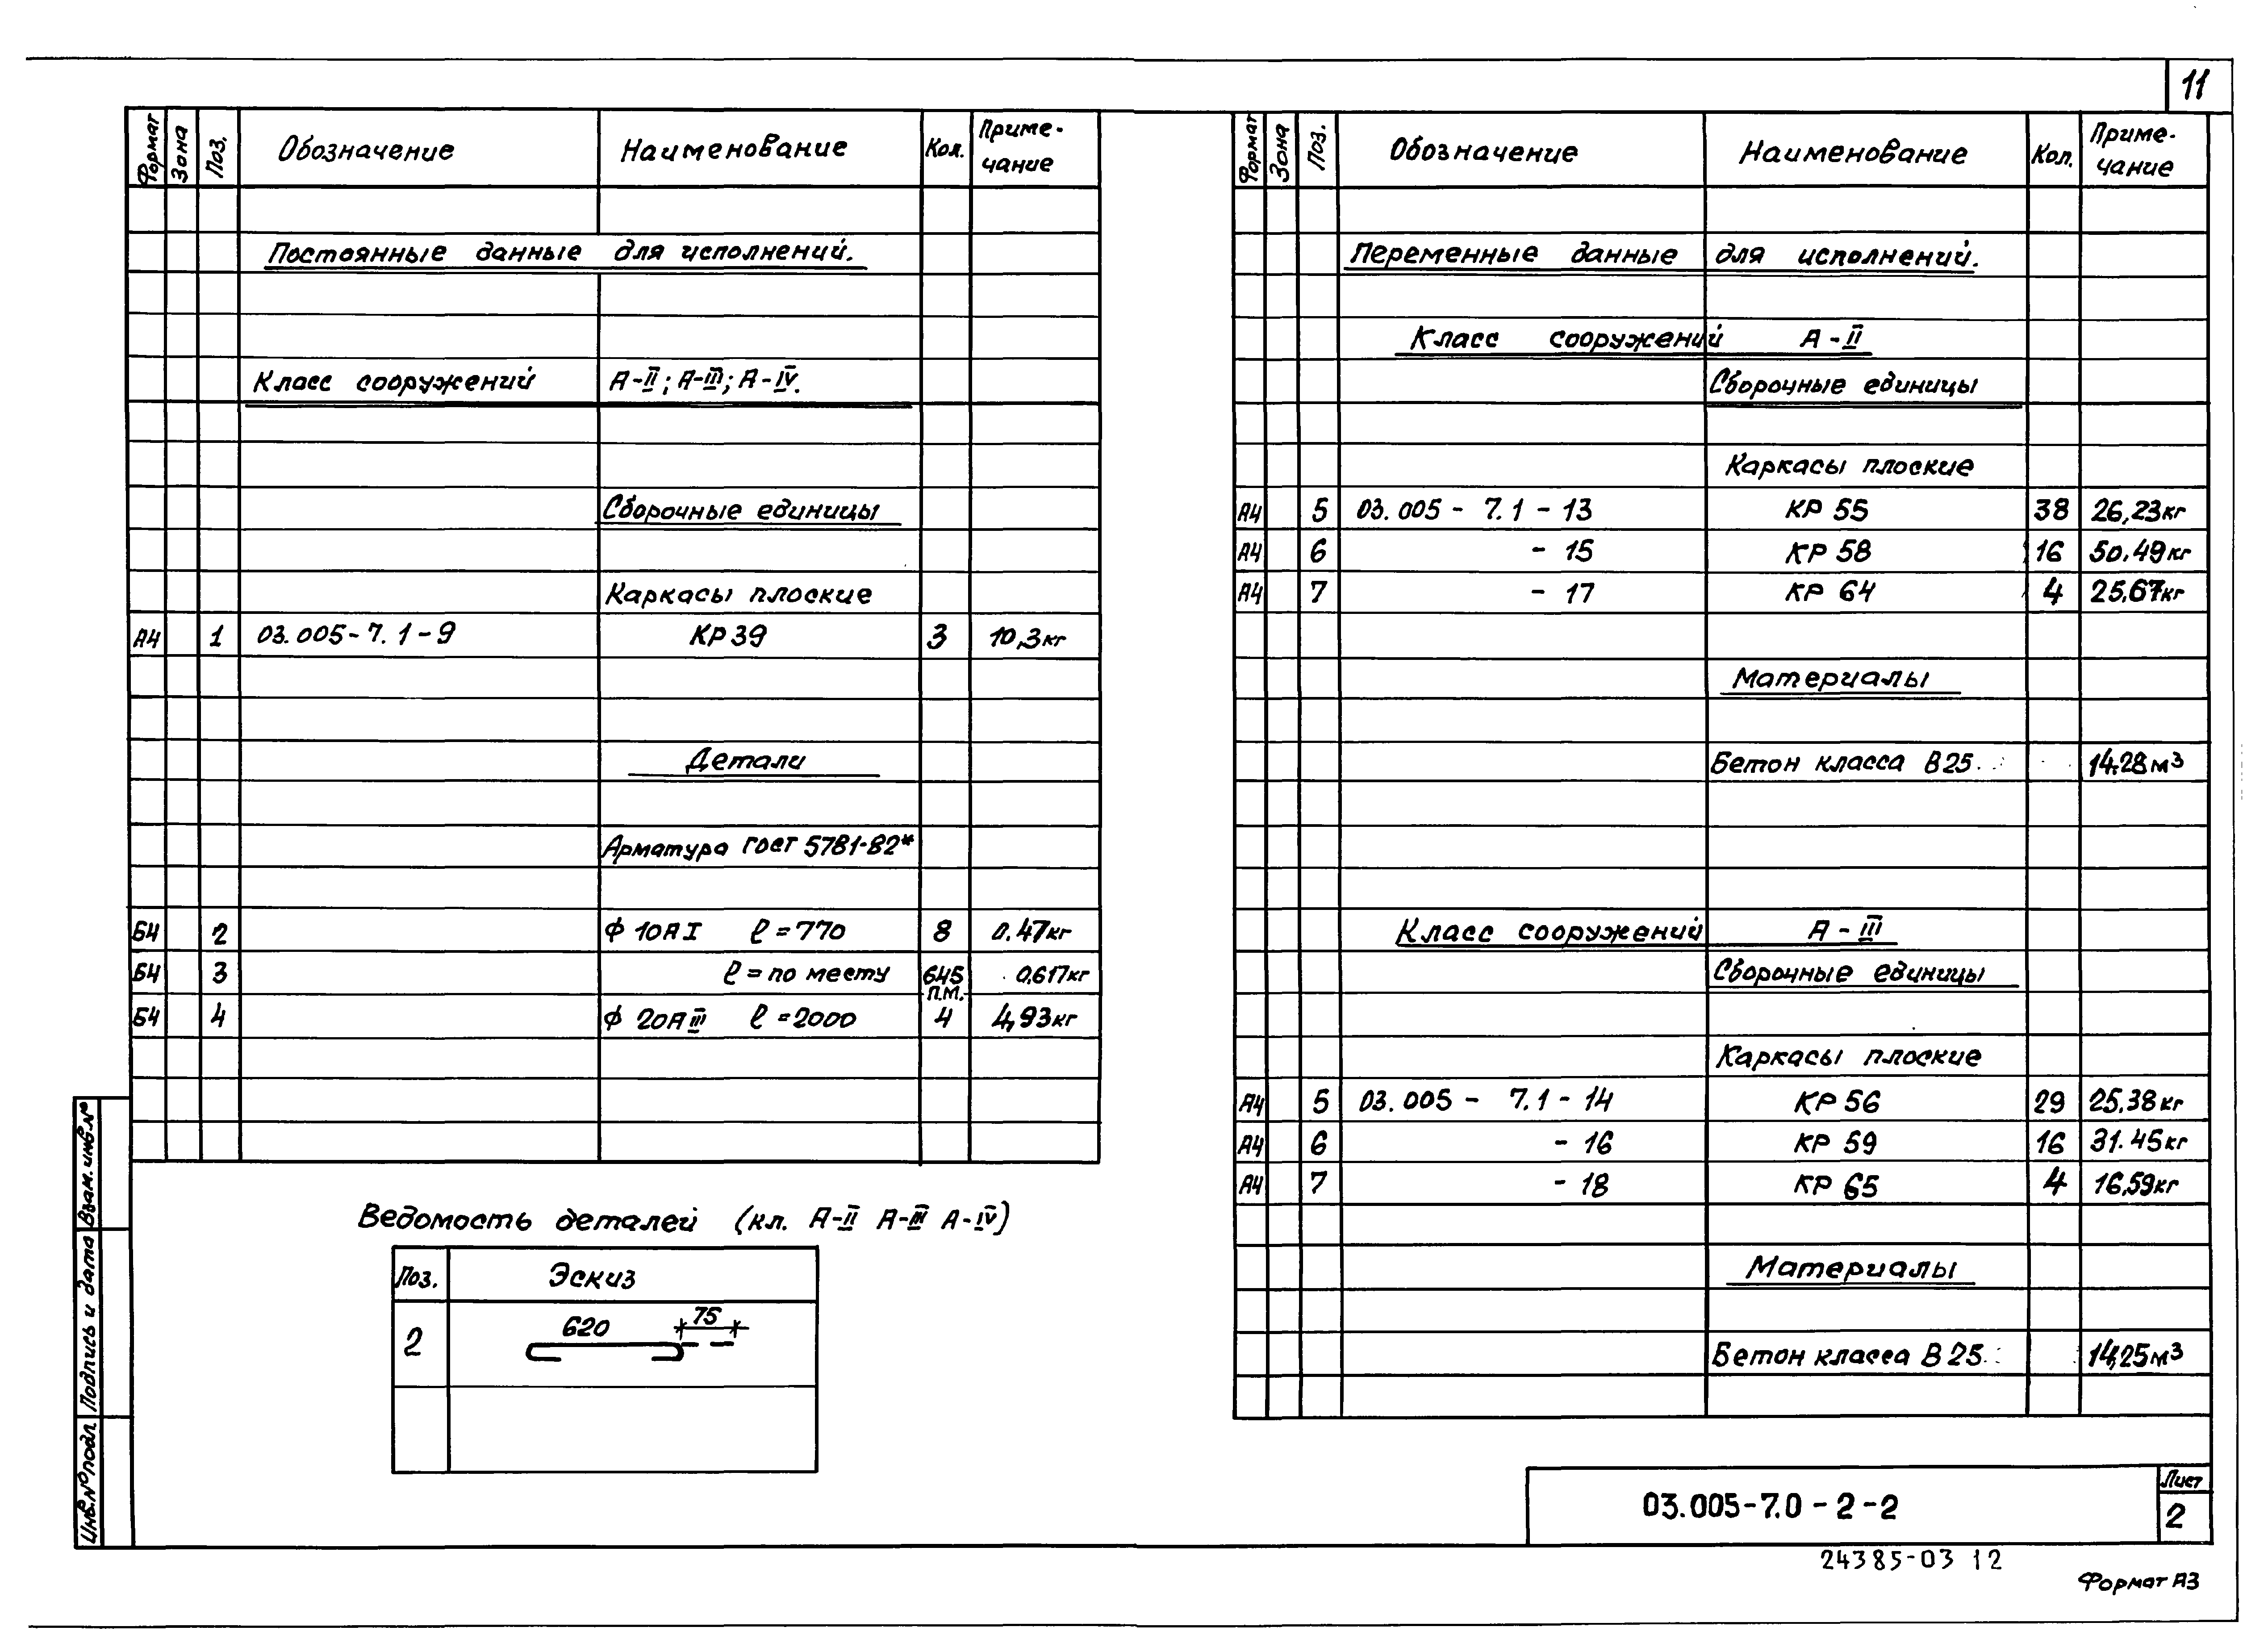 11
Формат Зона Поз. Обозначение Наименование Кол. Приме-чание
Постоянные данные для исполнений.
Класс сооружений А-II; А-III; А-IV.
Сборочные единицы
Каркасы плоские
А4 1 03.005-7.1-9 КР39 3 10,3кг
Детали
Арматура ГОСТ 5781-82*
Б4 2 ф 10АI ℓ=770 8 0.47кг
Б4 3 ℓ=по месту 645 п.м. 0,617кг
Б4 4 ф 20АIII ℓ=2000 4 4,93кг
Ведомость деталей (кл. А-II А-III А-IV)
Поз. Эскиз
2 620 75
Формат Зона Поз. Обозначение Наименование Кол. Приме-чание
Переменные данные для исполнений.
Класс сооружений А-II
Сборочные единицы
Каркасы плоские
А4 5 03.005-7.1-13 КР 55 38 26,23кг
А4 6 -15 КР 58 16 50.49кг
А4 7 -17 КР 64 4 25.67кг
Материалы
Бетон класса В25 14,28м³
Класс сооружений А-III
Сборочные единицы
Каркасы плоские
А4 5 03.005-7.1-14 КР 56 29 25.38кг
А4 6 -16 КР 59 16 31.45кг
А4 7 -18 КР 65 4 16,59кг
Материалы
Бетон класса В25 14,25м³
Инв.№подл. Подпись и дата Взам.инв.№
03.005-7.0-2-2
Лист
2
24385-03 12
Формат А3